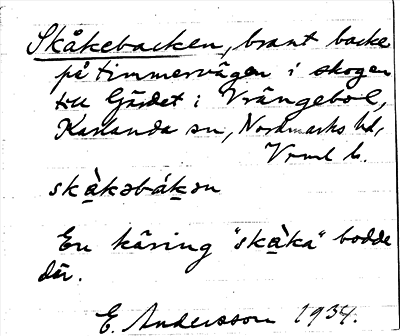 Skåkebacken, brant backe
på timmervägen i skogen
till Gärdet i Vrängebol,
Karlanda sn, Nordmarks hd,
Vrml l.
skàkəbákən
En käring "skàka" bodde
där.
E. Andersson 1934.